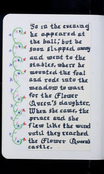 So in the evening
he appeared at
the ball, but he
soon slipped away
and went to the
stables, where he
mounted the foal
and rode into the
meadow to wait
for the Flower
Queen's daughter.
When she came, the
prince and she
flew like the wind
until they reached
the (Flower Queen)
castle.